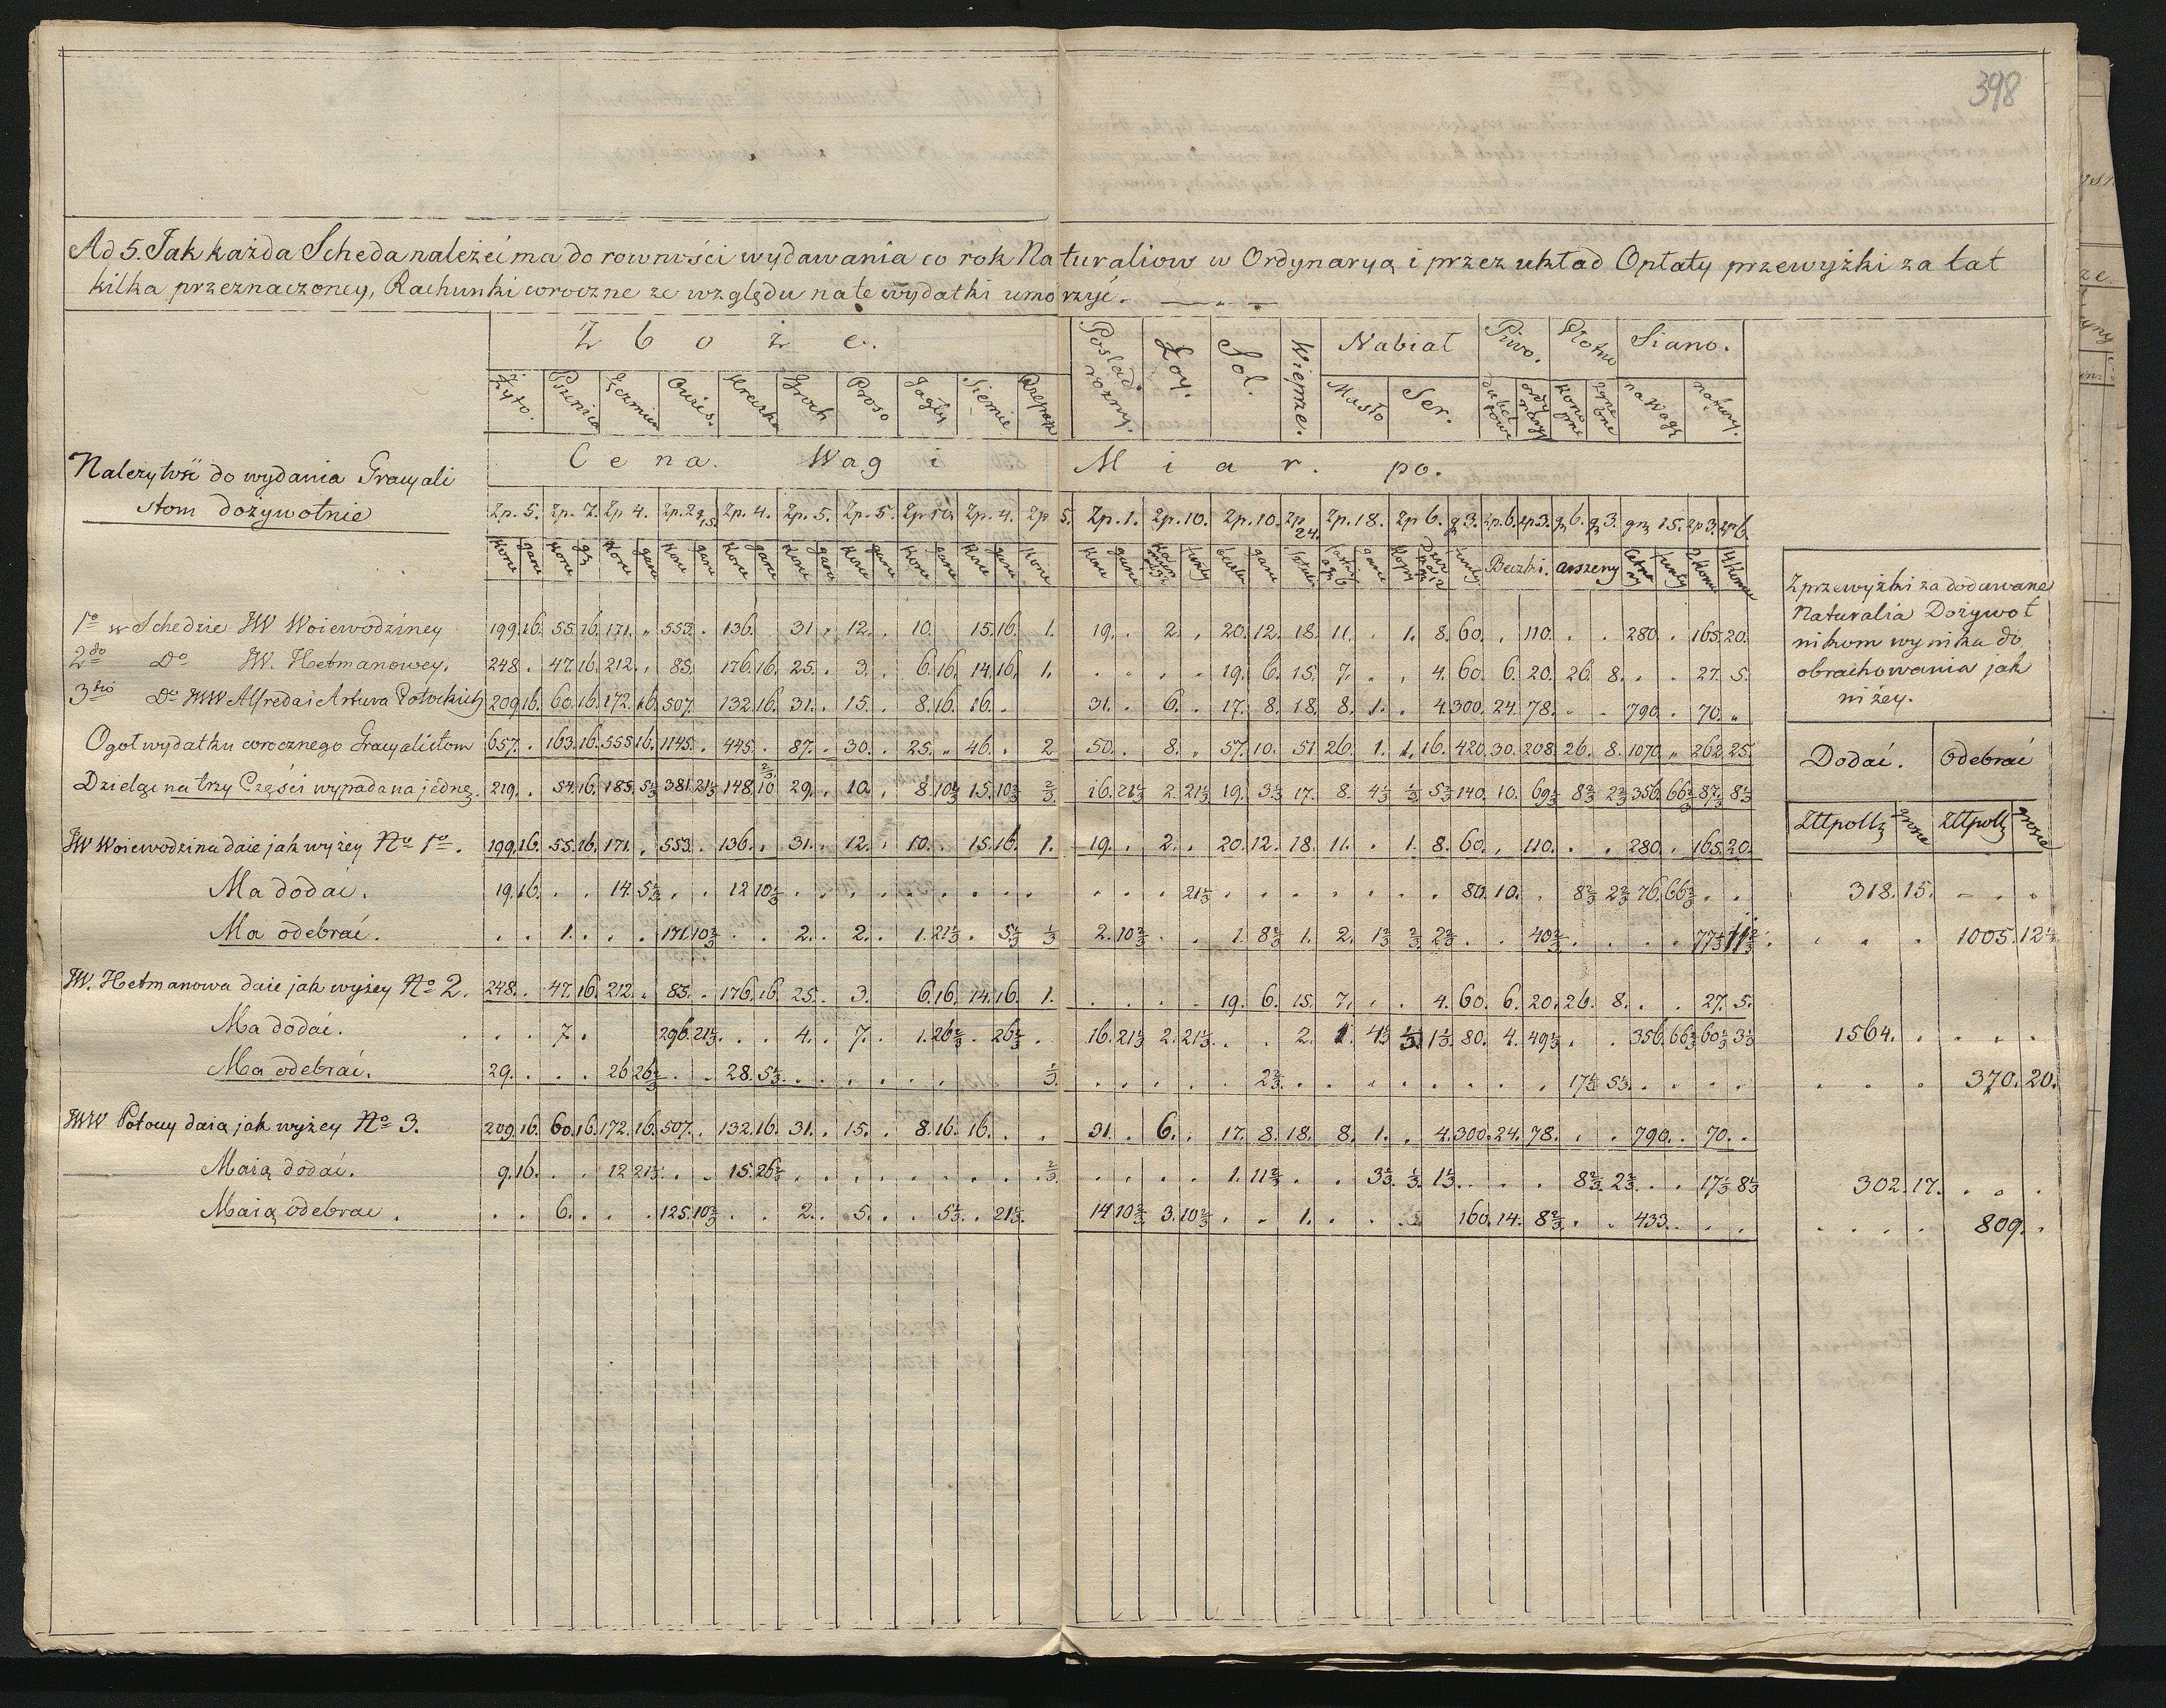 398
Ad 5. Jak każda Scheda należeć ma do rowności wydawania co rok Naturaliow w Ordynaryą i przez układ Opłaty przewyżki za lat
kilka przeznaczoney, Rachunki coroczne ze względu na te wydatki umorzyć.
Zboże. Poslad rożny. Łoy. Sol. Wieprze. Nabiał Piwo. Płotno Siano.
Żyto. Pszenica Jęczmień Owies. Hreczka Groch Proso Jagły Siemie Rzepak Masło Ser. na wagę
Cena. Wagi Miar. po.
Należytość do wydania Gracyali
stom dożywotnie
Zp. 5. Zp. 7. Zp 4. Zp. 2 g. 15. Zp. 4. Zp. 5. Zp. 5. Zp 10. Zp. 4. Zp 5. Zp. 1. Zp. 10. Zp. 10. Zp 24. Zp. 18. Zp 6. g 3. Zp. 6. Zp 3. g 6. g 3. g 15. Zp 3. Zp 6.
Beczki. arszeny
Z przewyżki za dodawane
Naturalia Dożywot
nikom wynika do
obrachowania jak
niżey.
Dodać. Odebrać
Złłpolł grosze Złłpolł grosze
1mo w Schedzie JW Woiewodziney 199. 16. 55. 16. 171. „ 553. . 136. 31 „ 12. . 10. 15. 16. 1. 19. . 2. „ 20. 12. 18. 11. . 1. 8. 60. . 110. . . 280. . 165. 20.
2do Do JW. Hetmanowey. 248. . 47. 16. 212. . 85. . 176. 16. 25. . 3. . 6. 16. 14. 16. 1. . . . . 19. 6. 15. 7. . . 4. 60. 6. 20. 26. 8. . . 27. 5.
3tio Do JWW Alfreda i Artura Potockich 209. 16. 60. 16. 172. 16. 507. 132. 16. 31. . 15. . 8. 16. 16. . 31. . 6. . 17. 8. 18. 8. 1. . 4. 300. 24. 78. . . 790. . 70. „
Ogoł wydatku corocznego Gracyalistom 657. . 163. 16. 555. 16. 1145. . 445. . 87. . 30. . 25. „ 46. . 2 50. . 8. . 57. 10. 51. 26. 1. 1. 16. 420. 30. 208. 26. 8. 1070. „ 262. 25.
Dzieląc na trzy Części wypada na jednę. 219. . 54. 16. 185. 5⅓ 381. 21⅓ 148. 10⅔ 29. . 10. . 8. 10⅔ 15. 10⅔ ⅔. 16. 21⅓ 2. 21⅓ 19. 3⅓ 17. 8. 4⅓ ⅓ 5⅓ 140. 10. 69⅓ 8⅔ 2⅔ 356. 66⅔ 87⅓ 8⅓
JW Woiewodzina daie jak wyżey No 1mo. 199. 16. 55. 16. 171. „ 553. . 136. . 31. . 12. . 10. . 15. 16. 1. 19. . 2. . 20. 12. 18. 11. . 1. 8. 60. . 110. . . 280. . 165. 20.
Ma dodać. 19. 16. . . 14. 5⅓ . . 12 10⅔ . . . 21⅓ . . . 80. 10. . 8⅔ 2⅔ 76. 66⅔ . . 318. 15. – . .
Ma odebrać. . . 1. . . . 171. 10⅔ . . 2. . 2. . 1. 21⅓ . 5⅓ ⅓ 2. 10⅔ . . 1. 8⅔ 1. 2. 1⅔ ⅔ 2⅔ . . 40⅔ . . . . 77⅔ 11⅔ . . . 1005. 12½
JW. Hetmanowa daie jak wyżey No 2. 248. . 47. 16. 212. . 85. . 176. 16. 25. . 3. 6. 16. 14. 16. 1. . . . . 19. 6. 15. 7. . . 4. 60. 6. 20. 26. 8. . . 27. 5.
Ma dodać. . . 7. . 296. 21⅓ . . 4. . 7. . 1. 26⅔ . 26⅔ . 16. 21⅓ 2. 21⅓ . . 2. 1. 4⅓ ⅓ 1⅓ 80. 4. 49⅓ . . 356. 66⅔ 60⅓ 3⅓ 1564. . . . .
Ma odebrać. 29. . . . 26 26⅔ . . 28. 5⅓ . . . ⅓. . . . 2⅔ . . . 17⅓ 5⅓ . . . . . . . 370. 20.
JWW Potoccy daią jak wyżey No 3. 209. 16. 60. 16. 172. 16. 507. . 132. 16. 31. . 15. . 8. 16. 16. . . 31. . 6. . 17. 8. 18. 8. 1. . 4. 300. 24. 78. . . 790. . 70. .
Maią dodać. 9. 16. . . 12 21⅓ . . 15. 26⅔ . . . ⅔ . . . 1. 11⅔ . . 3⅓ ⅓ 1⅓ . . . 8⅔ 2⅔ . . 17⅓ 8⅓ 302. 17. . . .
Maią odebrać. . . 6. . . . 125. 10⅔ . . 2. . 5. . . 5⅓ . 21⅓. 14 10⅔ 3. 10⅔ . . 1. . . 160. 14. 8⅔ . . 433. . . . . . . 809. .